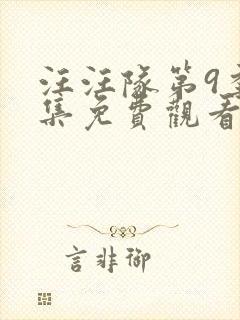 汪汪隊第9季
集免費觀看
言非御